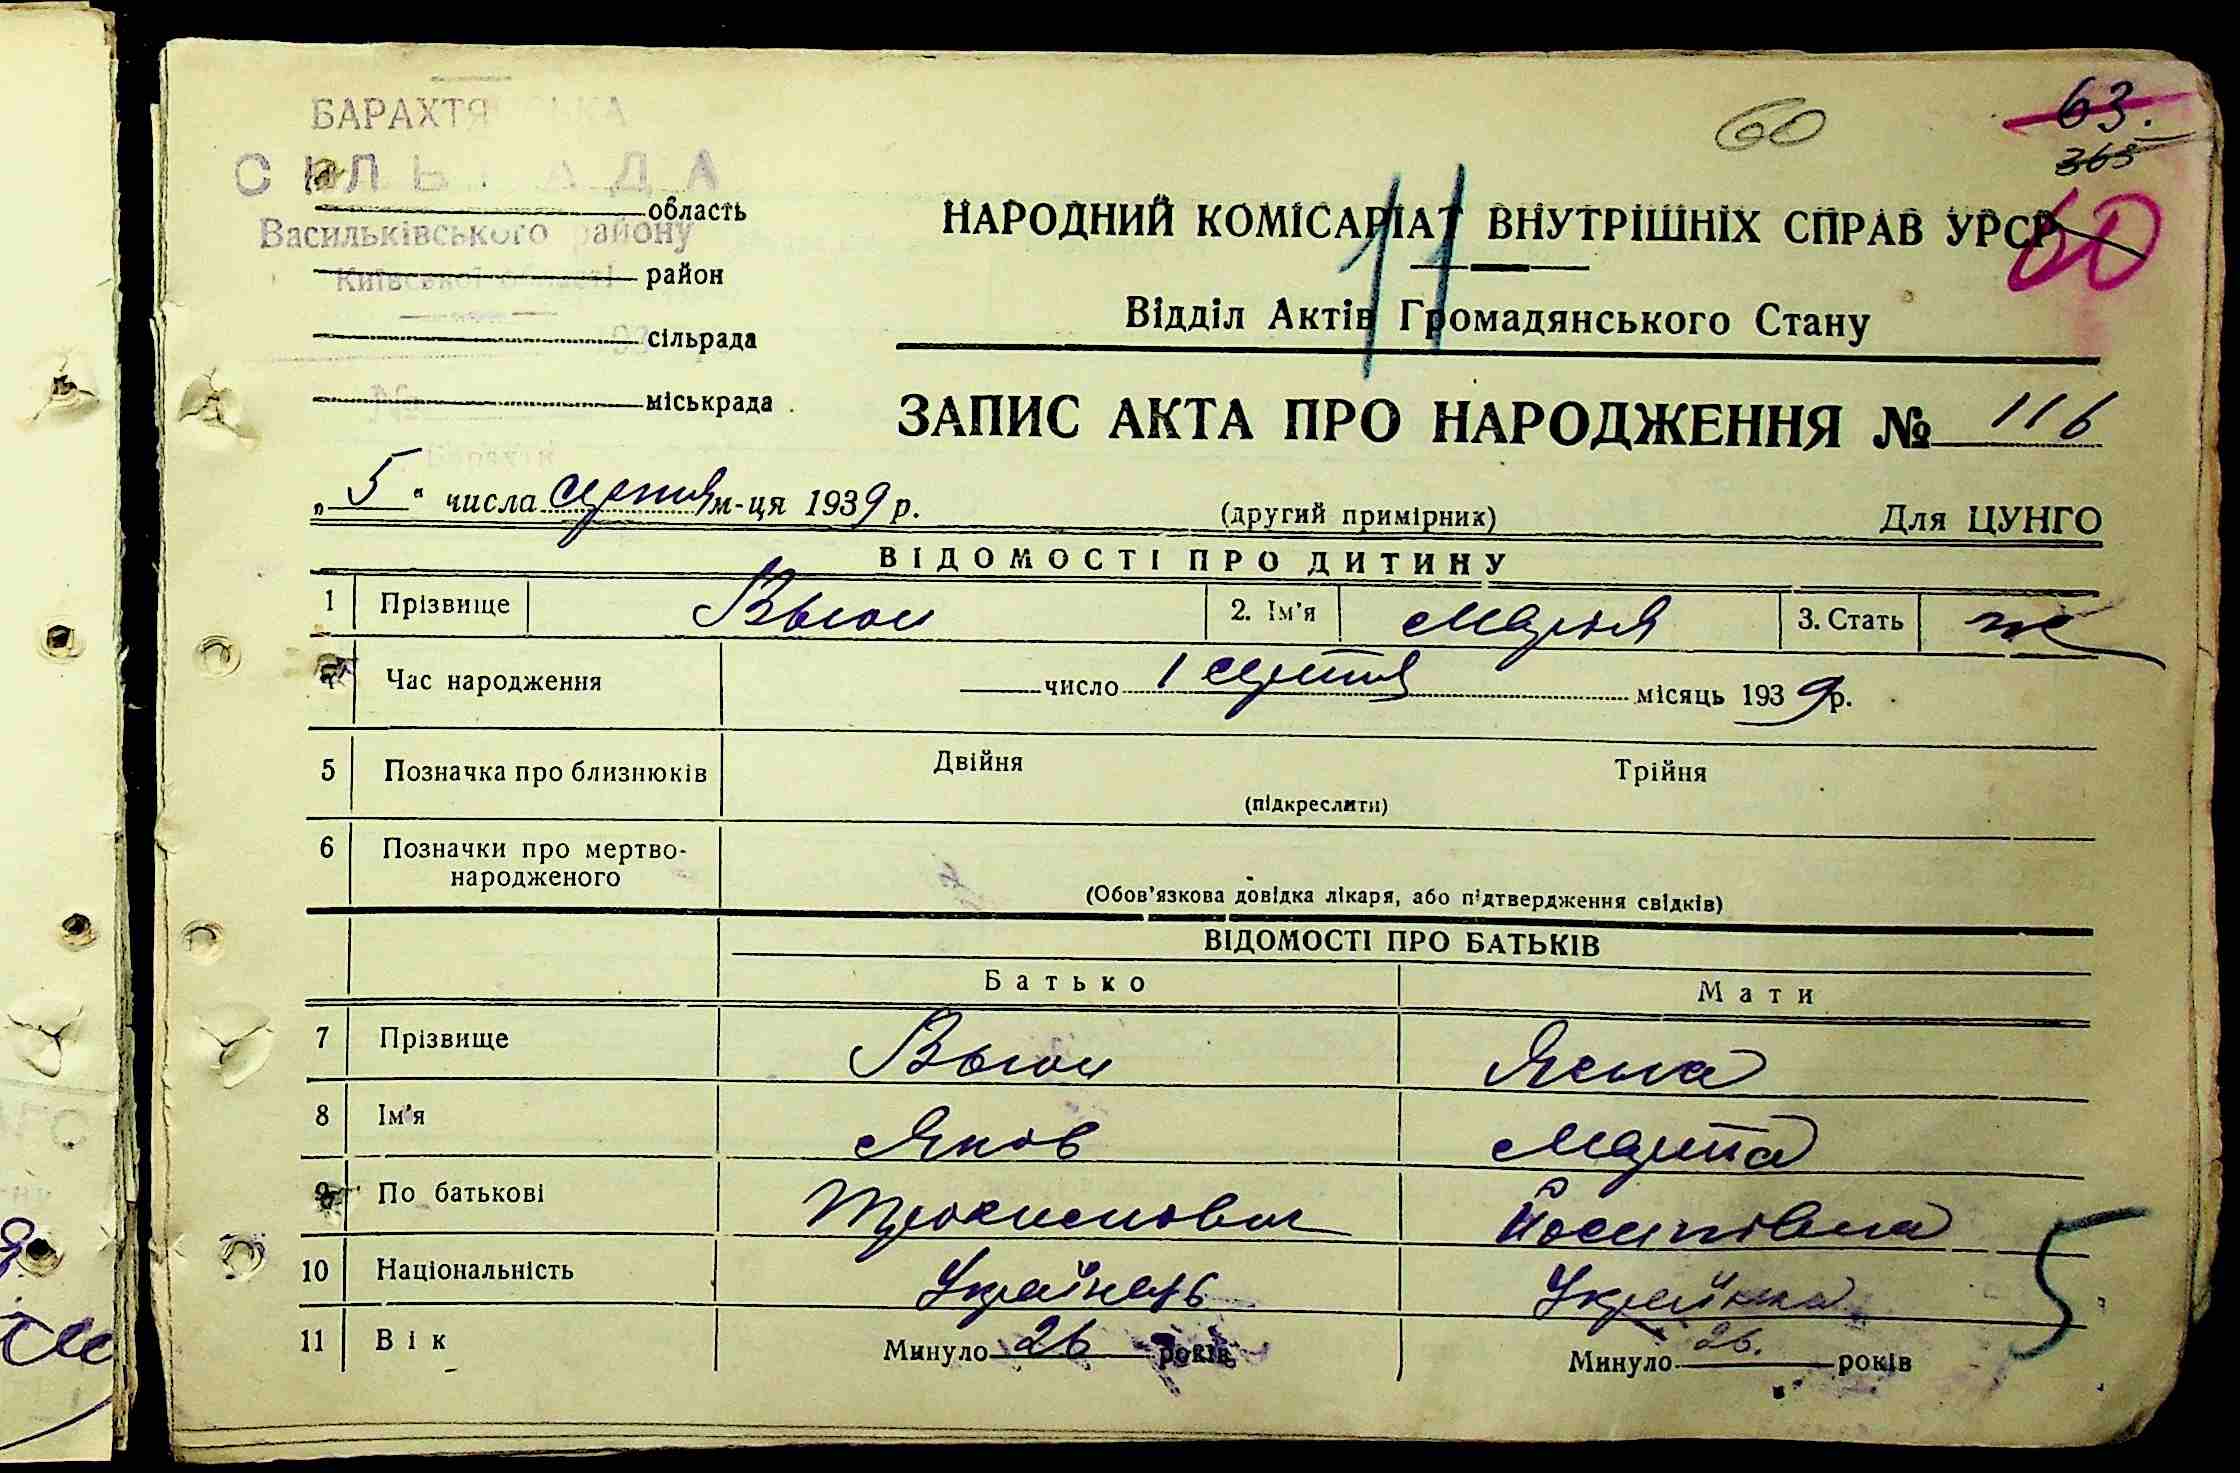 60
63.
365
60
11
БАРАХТЯНСЬКА
СІЛЬРАДА
область
Васильківського району
район
Київської області
сільрада
міськрада
№
с. Барахти
НАРОДНИЙ КОМІСАРІАТ ВНУТРІШНІХ СПРАВ УРСР
Відділ Актів Громадянського Стану
ЗАПИС АКТА ПРО НАРОДЖЕННЯ № 116
„5“ числа серпня м-ця 1939 р. (другий примірник) Для ЦУНГО
ВІДОМОСТІ ПРО ДИТИНУ
1 Прізвище 2. Ім'я Марія 3. Стать ж
4 Час народження число 1 серпня місяць 1939 р.
5 Позначка про близнюків Двійня Трійня
(підкреслити)
6 Позначки про мертво-
народженого
(Обов'язкова довідка лікаря, або підтвердження свідків)
ВІДОМОСТІ ПРО БАТЬКІВ
Батько Мати
7 Прізвище
8 Ім'я Яків Марта
9 По батькові Йосипівна
10 Національність Українець Українка
11 Вік Минуло 26 років Минуло 26. років
5